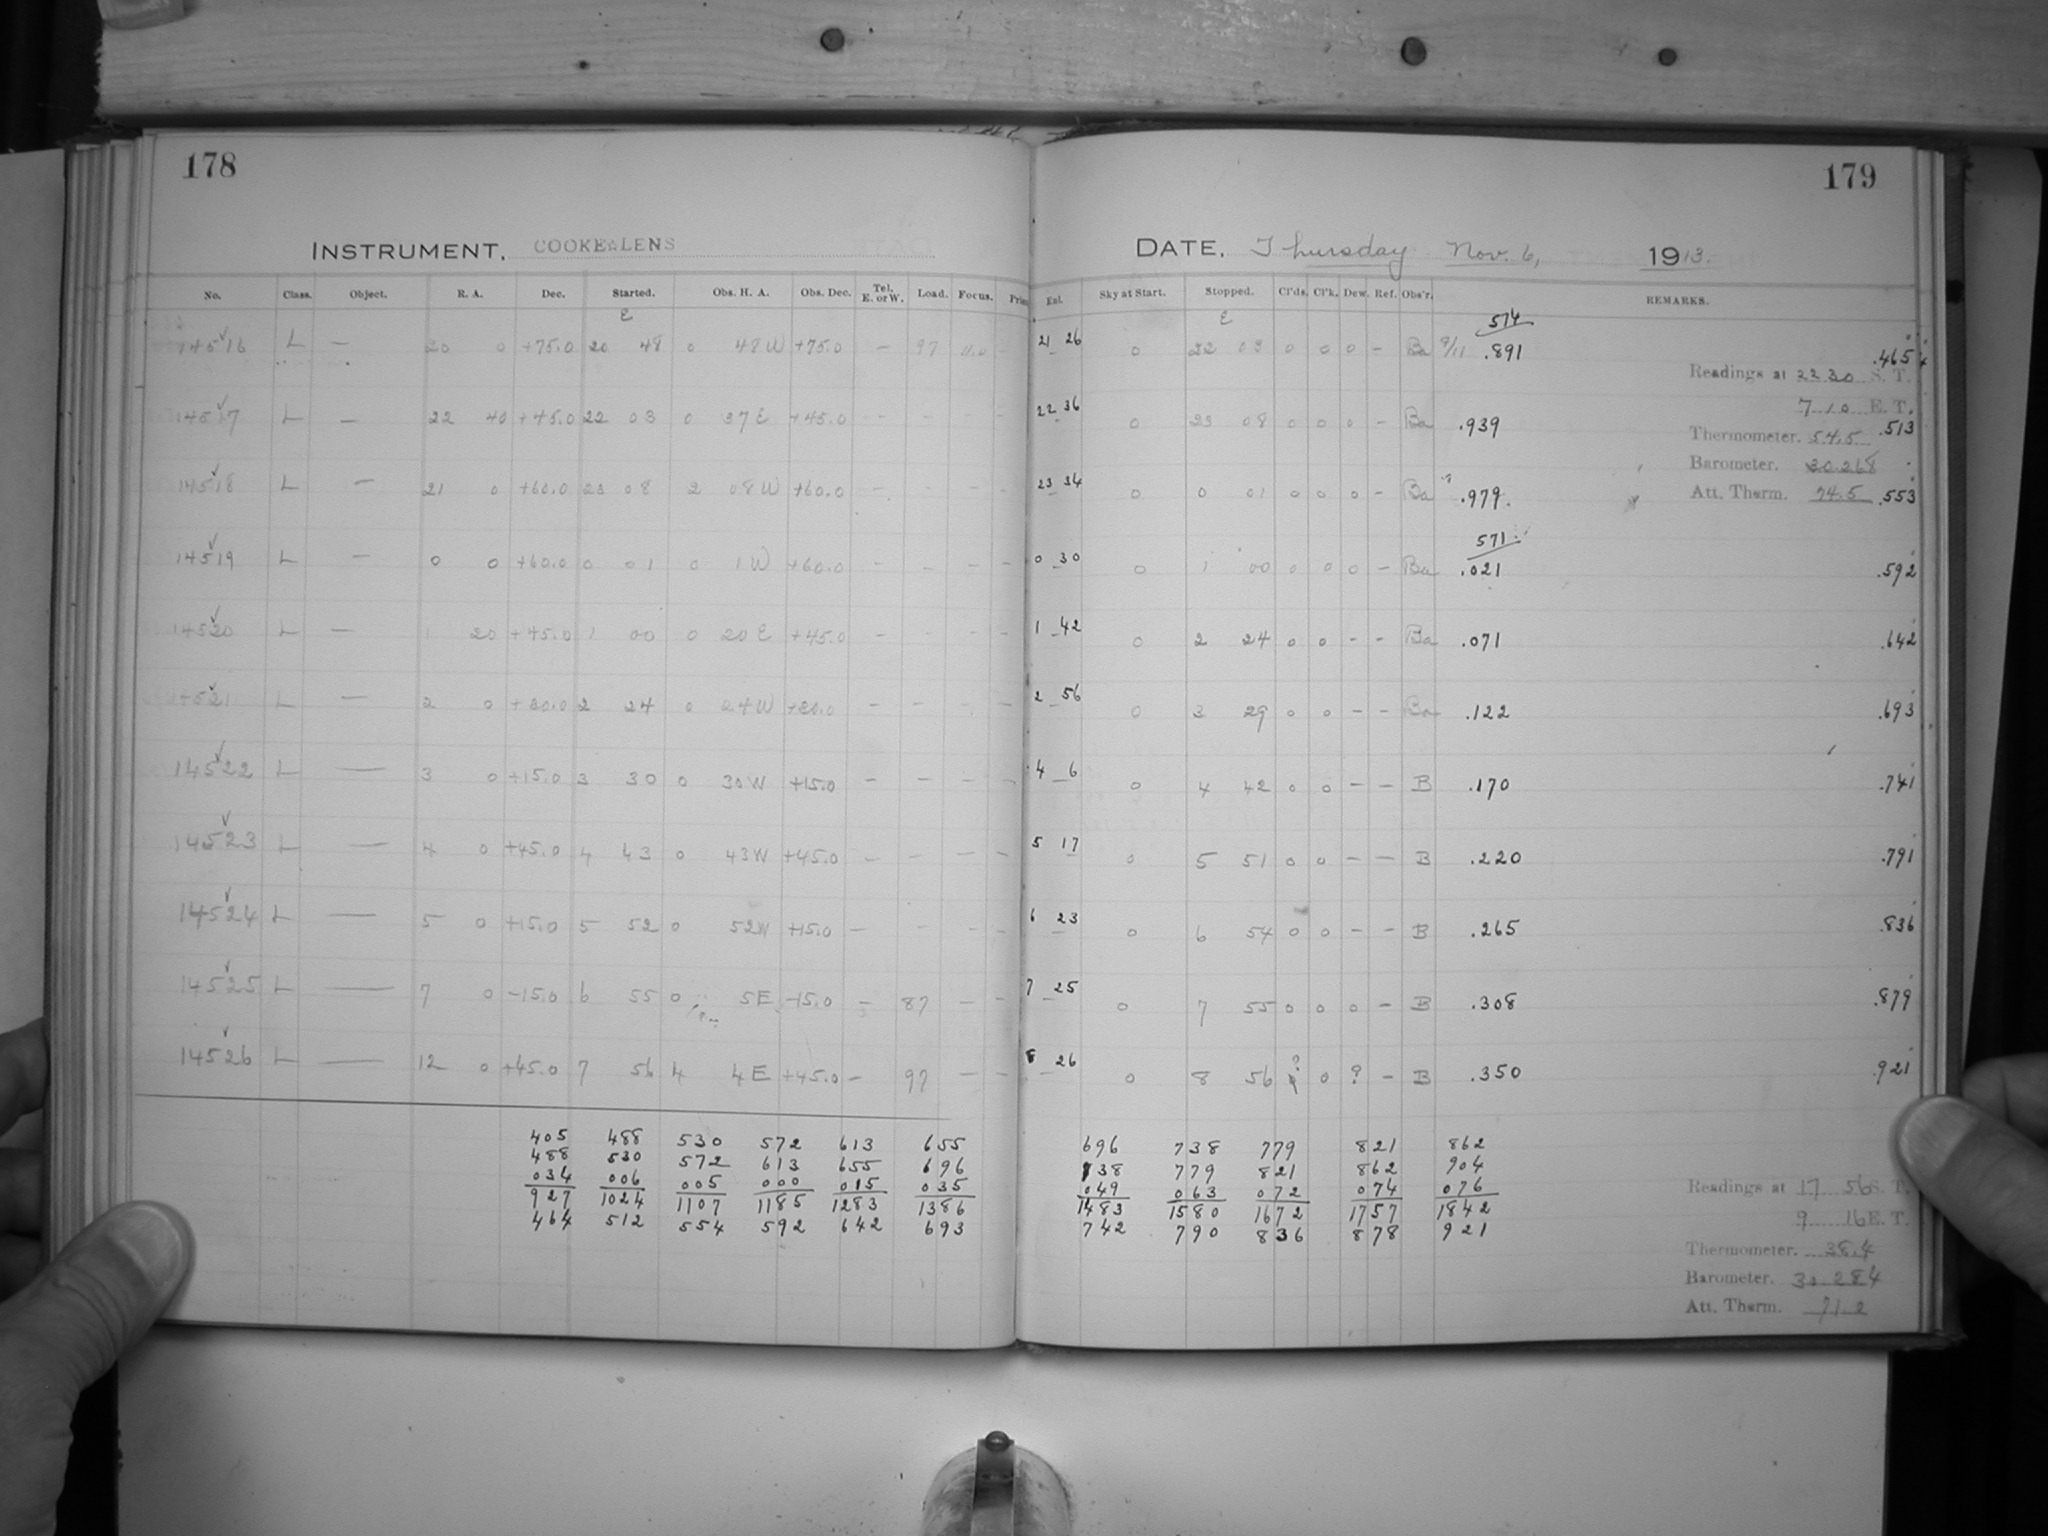 178
INSTRUMENT, COOKE LENS
No. Class. Object. R. A. Dec. Started. Obs. H. A. Obs. Dec. Tel. E. or W. Load. Focus.
E
14516 L — 20 0 +75.0 20 48 0 48 W +75.0 — 97 11.0
14517 L — 22 40 +45.0 22 03 0 37 E +45.0 — — — —
14518 L — 21 0 +60.0 23 08 2 08 W +60.0 — — — —
14519 L — 0 0 +60.0 0 01 0 1 W +60.0 — — — —
14520 L — 1 20 +45.0 1 00 0 20 E +45.0 — — — —
14521 L — 2 0 +30.0 2 24 0 24 W +30.0 — — — —
14522 L — 3 0 +15.0 3 30 0 30 W +15.0 — — — —
14523 L — 4 0 +45.0 4 43 0 43 W +45.0 — — — —
14524 L — 5 0 +15.0 5 52 0 52 W +15.0 — — — —
14525 L — 7 0 -15.0 6 55 0 5 E -15.0 — 87 — —
14526 L — 12 0 +45.0 7 56 4 4 E +45.0 — 97 — —
405 488 530 572 613 655
488 530 572 613 655 696
034 006 005 000 015 035
927 1024 1107 1185 1283 1386
464 512 554 592 642 693
179
DATE, Thursday Nov. 6, 1913.
Exl. Sky at Start. Stopped. Cl'ds. Cl'k. Dew. Ref. Obs'r. REMARKS.
E 574
21 26 0 22 03 0 0 0 — Ba 9/11 .891 .465
Readings at 22 30 S. T.
7 10 E. T.
22 36 0 23 08 0 0 0 — Ba .939 .513
Thermometer. 54.5
Barometer. 30.268
23 34 0 0 01 0 0 0 — Ba .979. .553
Att. Therm. 74.5
571
0 30 0 1 00 0 0 0 — Ba .021 .592
1 42 0 2 24 0 0 — — Ba .071 .642
2 56 0 3 29 0 0 — — Ba .122 .693
4 6 0 4 42 0 0 — — B .170 .741
5 17 0 5 51 0 0 — — B .220 .791
6 23 0 6 54 0 0 — — B .265 .836
7 25 0 7 55 0 0 0 — B .308 .879
8 26 0 8 56 ? 0 ? — B .350 .921
696 738 779 821 862
738 779 821 862 904
049 063 072 074 076
1483 1580 1672 1757 1842
742 790 836 878 921
Readings at 17 56 S. T.
9 16 E. T.
Thermometer. 38.4
Barometer. 30.284
Att. Therm. 71.2